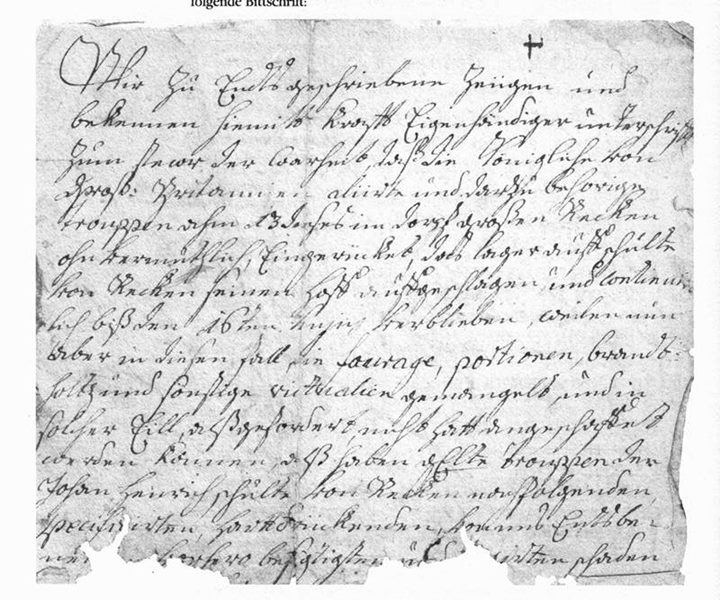 folgende Bittschrift:
Wir zu Endts geschriebene Zeugen und
bekennen hiemit Krafft Eigenhändiger unterschrifft
zum stewr der warheit, daß die Königliche von
Groß: Britannien aliirte und darzu behörige
trouppen ahm 13 dieses im dorff großen Recken
ohn vermuthlich Eingerücket, das lager auff schulte
von Recken seinen Hoff auffgeschlagen, und
lich biß den 16ten verblieben, weilen nun
aber in diesen fall die fourage, portionen, brandt:
holtz und sonstige victualien gemangelt, und in
solcher Eill, alß gefordert, nicht hatt angeschaffet
werden können, alß haben gElte trouppen der
Johan Henrich schulte von Recken nachfolgenden
specificirten, von uns Endtsbe:
besigtigten schaden